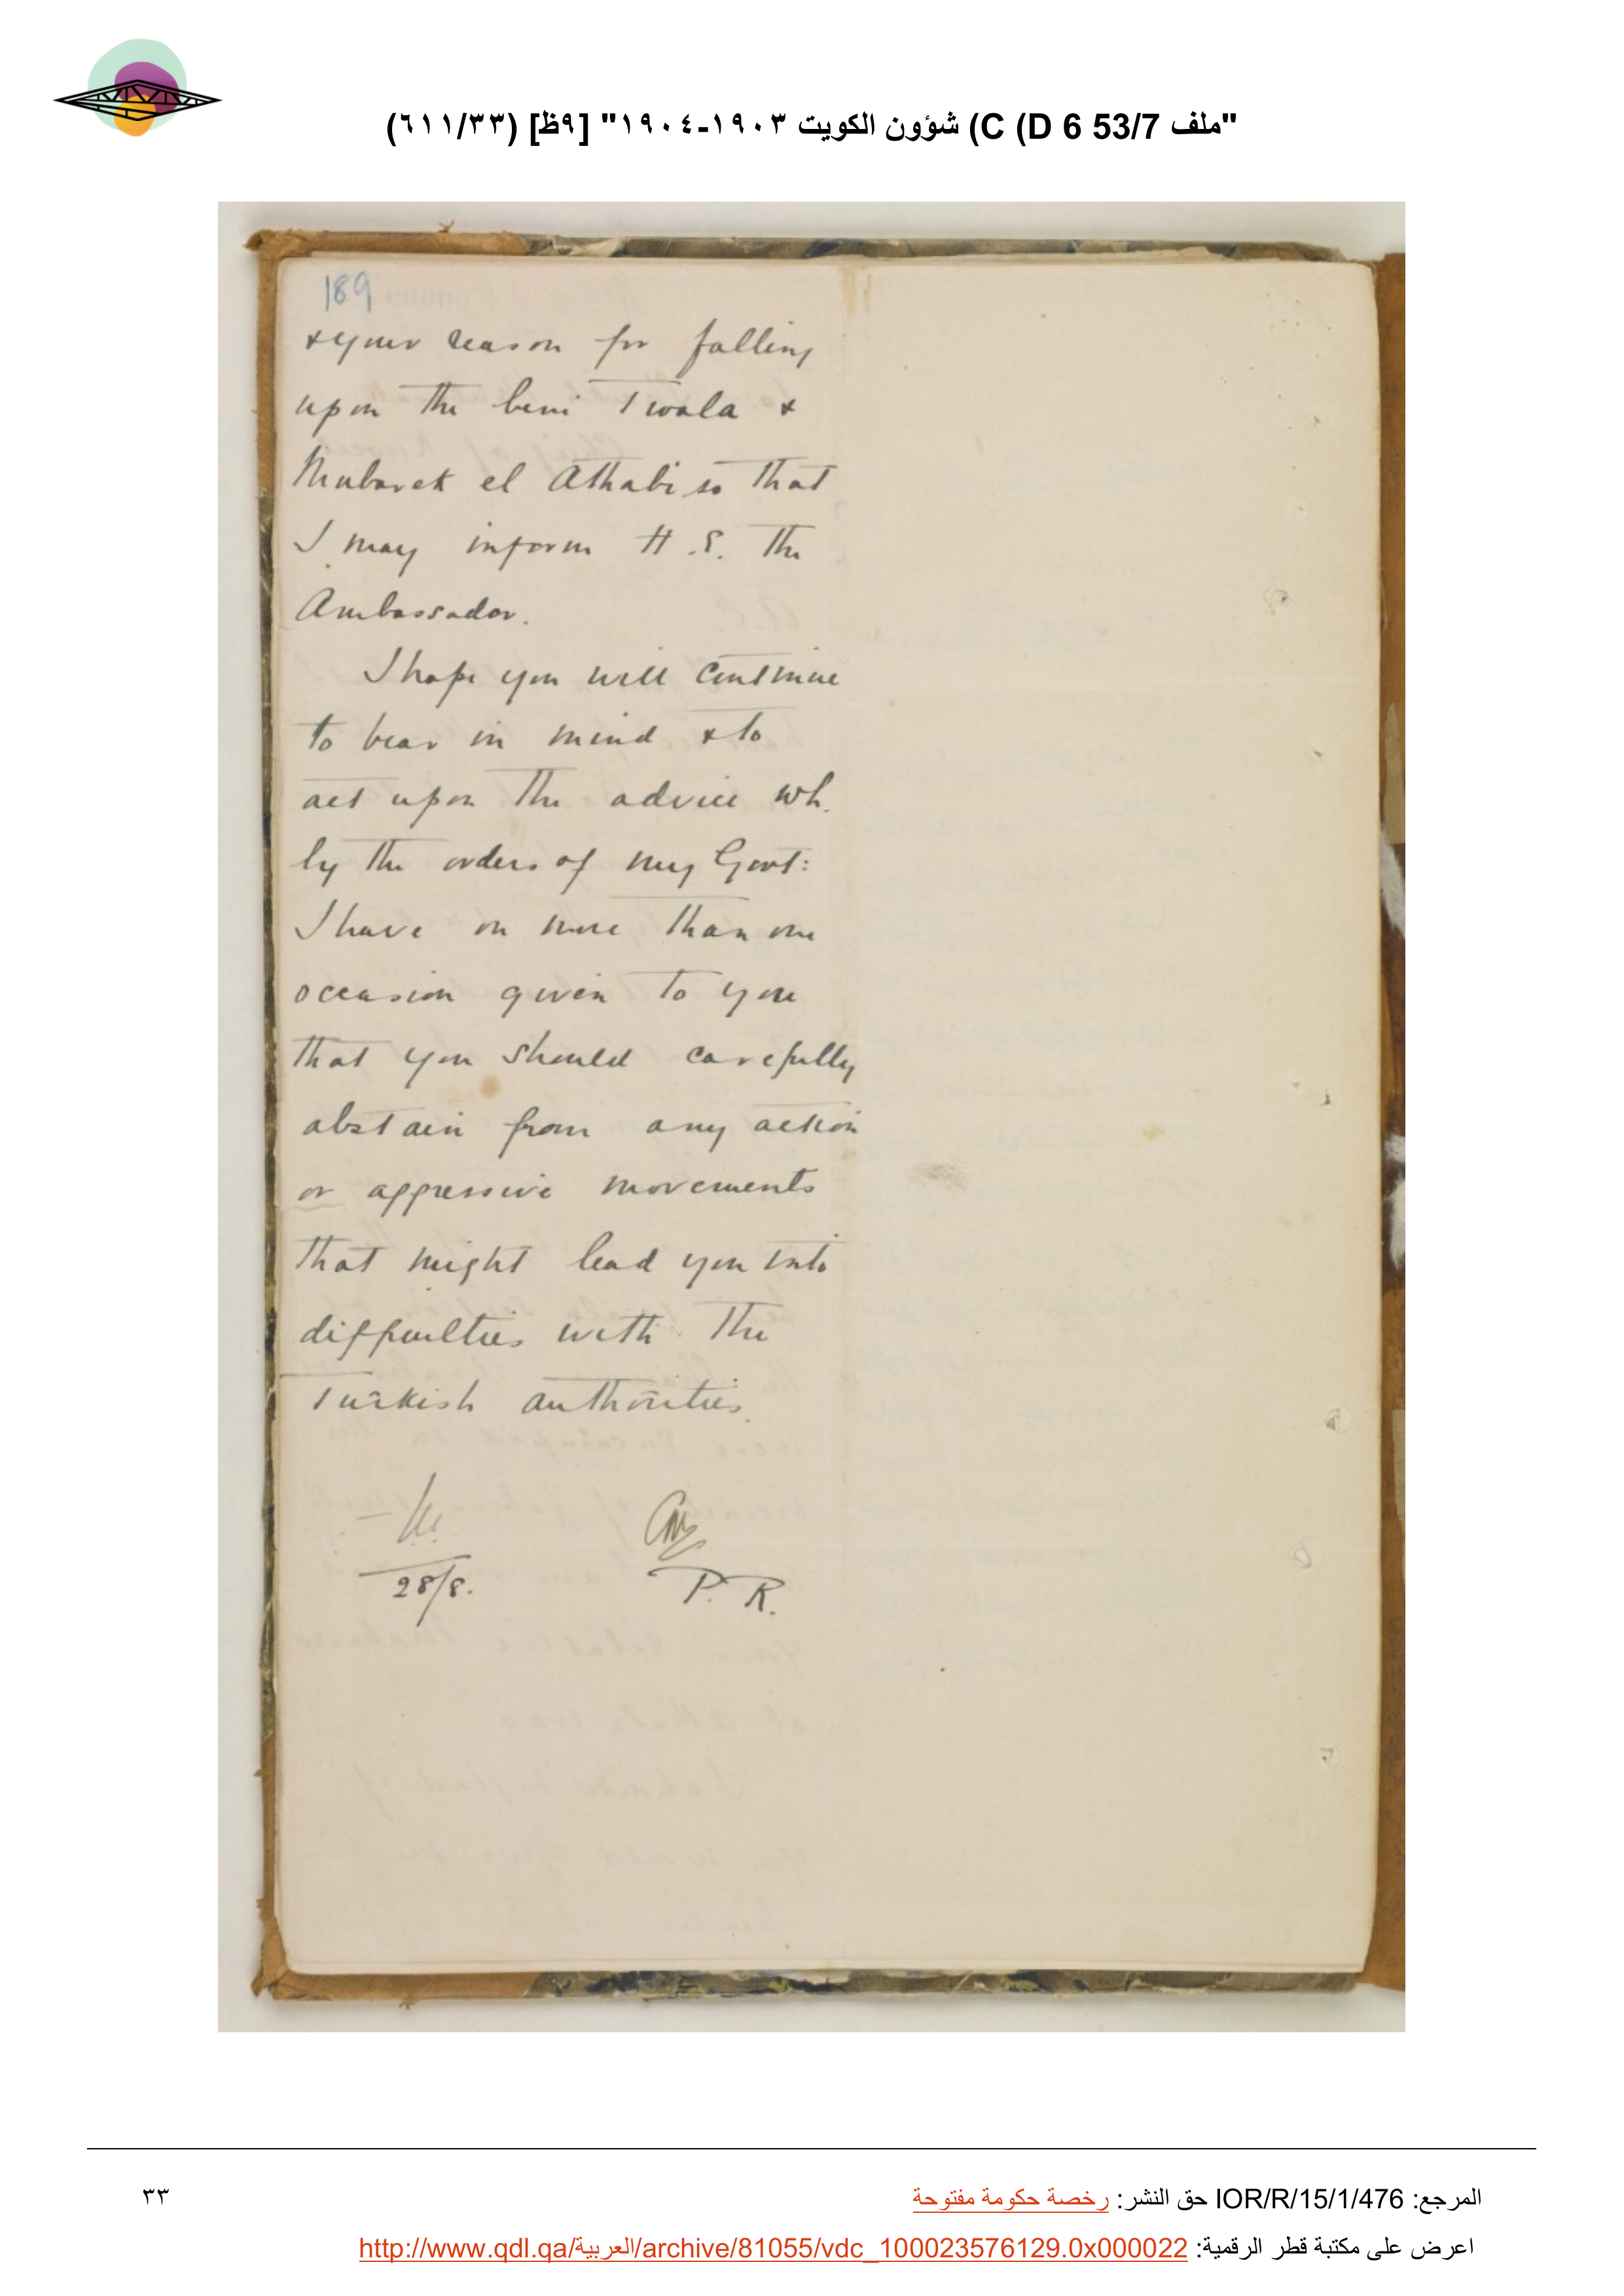 "ملف 53/7 D 6) C) شؤون الكويت ١٩٠٣-١٩٠٤" [٩ظ] (٦١١/٣٣)
189
& your reason for falling
upon the beni Twala &
Mubarek el Athabi so that
I may inform H.E. the
Ambassador.
I hope you will continue
to bear in mind & to
act upon the advice wh.
by the orders of my Govt:
I have on more than one
occasion given to you
that you should carefully
abstain from any action
or aggressive movements
that might lead you into
difficulties with the
Turkish authorities.
28/8.
P. R.
المرجع: IOR/R/15/1/476 حق النشر: رخصة حكومة مفتوحة
٣٣
اعرض على مكتبة قطر الرقمية: http://www.qdl.qa/العربية/archive/81055/vdc_100023576129.0x000022